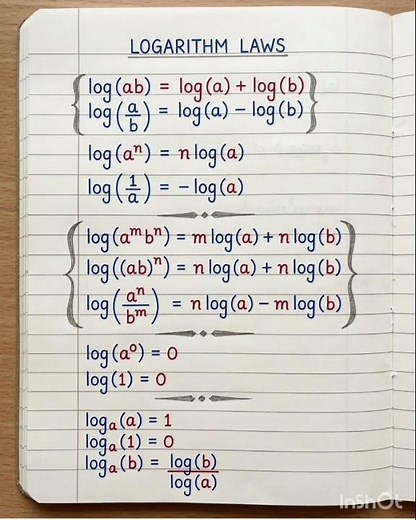 LOGARITHM LAWS
log(ab) = log(a) + log(b)
log(a/b) = log(a) − log(b)
log(aⁿ) = n log(a)
log(1/a) = −log(a)
log(aᵐbⁿ) = m log(a) + n log(b)
log((ab)ⁿ) = n log(a) + n log(b)
log(aⁿ/bᵐ) = n log(a) − m log(b)
log(a⁰) = 0
log(1) = 0
logₐ(a) = 1
logₐ(1) = 0
logₐ(b) = log(b)/log(a)
InShOt